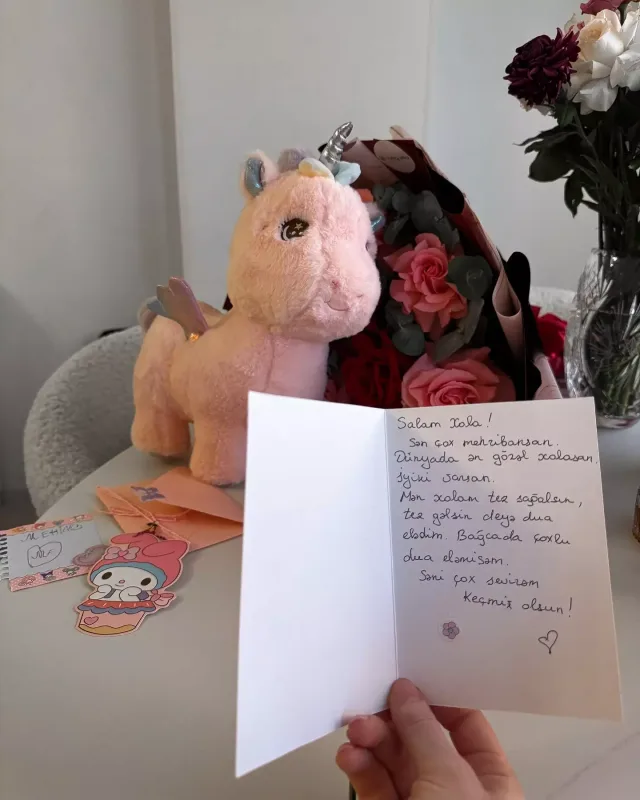 Salam Xala!
Sən çox mehribansan.
Dünyada ən gözəl xalasan.
İyiki varsan.
Mən xalam tez sağalsın,
tez gəlsin deyə dua
elədim. Bağcada çoxlu
dua eləmişəm.
Səni çox sevirəm
Keçmiş olsun!